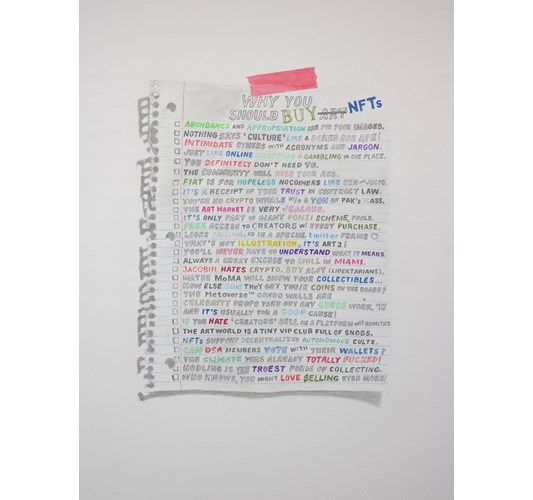 WHY YOU
SHOULD BUY ART NFTs
ABUNDANCE AND APPROPRIATION ARE FOR POOR IMAGES.
NOTHING SAYS 'CULTURE' LIKE A BORED APE!
INTIMIDATE OTHERS WITH ACRONYMS AND JARGON.
JUST LIKE ONLINE GAMBLING IN ONE PLACE.
YOU DEFINITELY DON'T NEED TO.
THE COMMUNITY WILL KISS YOUR ASS.
FIAT IS FOR HOPELESS NOCOINERS LIKE
IT'S A RECEIPT OF YOUR TRUST IN CONTRACT LAW.
YOU'RE NO CRYPTO WHALE W/O A TON OF PAK'S MASS.
THE ART MARKET IS VERY JEALOUS.
IT'S ONLY PART OF GIANT PONZI SCHEME, FOOLS.
FREE ACCESS TO CREATORS W/ EVERY PURCHASE.
LOOKS IN A SPECIAL twitter FRAME
THAT'S NOT ILLUSTRATION, IT'S ART2!
YOU'LL NEVER HAVE TO UNDERSTAND WHAT IT MEANS.
ALWAYS A GREAT EXCUSE TO SHILL IN MIAMI.
JACOBIN HATES CRYPTO. BUY ALOT (LIBERTARIANS).
MAYBE MoMA WILL SHOW YOUR COLLECTIBLES...
HOW ELSE CAN THEY GET YOU/R COINS ON THE BOARD!
THE Metaverse™ CONDO WALLS ARE
CELEBRITY DROPS TAKE OFF ANY GUESS WORK,
AND IT'S USUALLY FOR A GOOD CAUSE!
IF YOU HATE 'CREATORS' SELL ON A PLATFORM W/O ROYALTIES
THE ARTWORLD IS A TINY VIP CLUB FULL OF SNOBS.
NFTs SUPPORT DECENTRALIZED AUTONOMOUS CULTS.
CAN DSA MEMBERS VOTE WITH THEIR WALLETS?
THE CLIMATE WAS ALREADY TOTALLY FUCKED!
HODLING IS THE TRUEST FORM OF COLLECTING.
WHO KNOWS, YOU MIGHT LOVE $ELLING EVEN MORE!